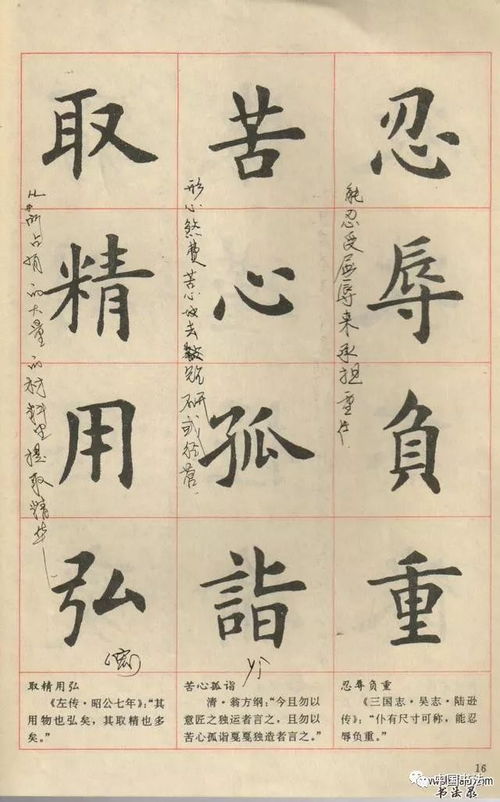 忍辱負重
能忍受屈辱来承担重任
苦心孤詣
形心煞费苦心地去钻研或经营
yì
取精用弘
从所占有的大量的材料里提取精华
(宏)
取精用弘
《左传·昭公七年》：“其
用物也弘矣，其取精也多
矣。”
苦心孤诣
清·翁方纲：“今且勿以
意匠之独运者言之，且勿以
苦心孤诣戛戛独造者言之。”
忍辱负重
《三国志·吴志·陆逊
传》：“仆有尺寸可称，能忍
辱负重。”
16
中国书法
书法录